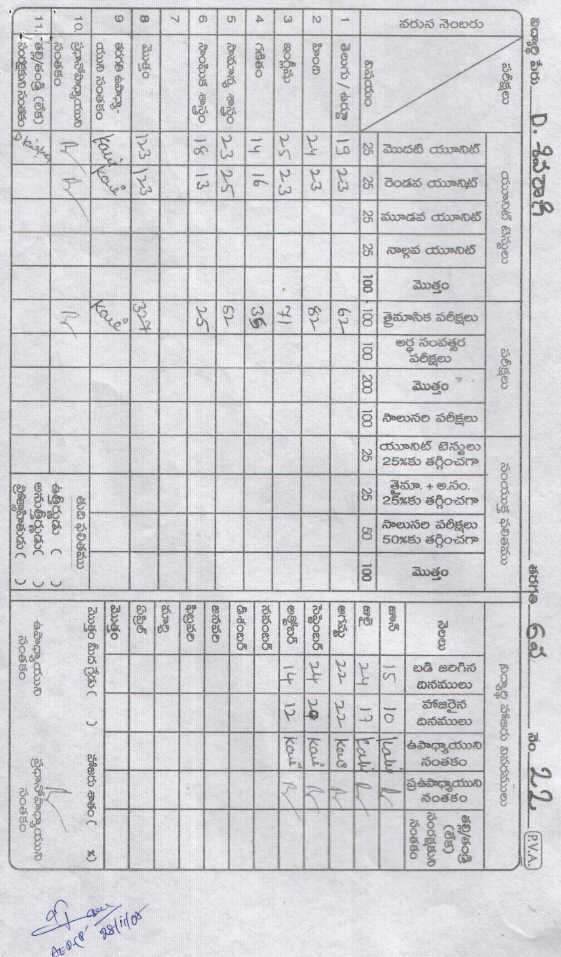 విద్యార్థి పేరు D. శివరాణి తరగతి 6వ నెం 22 P.V.A.
వరుస నెంబరు పరీక్షలు యూనిట్ టెస్టులు పరీక్షలు సంయుక్త ఫలితము
విషయం మొదటి యూనిట్ రెండవ యూనిట్ మూడవ యూనిట్ నాల్గవ యూనిట్ మొత్తం త్రైమాసిక పరీక్షలు అర్ధ సంవత్సర పరీక్షలు మొత్తం సాలుసరి పరీక్షలు యూనిట్ టెస్టులు 25%కు తగ్గించగా త్రైమా. + అ.సం. 25%కు తగ్గించగా సాలుసరి పరీక్షలు 50%కు తగ్గించగా మొత్తం
25 25 25 25 100 100 100 200 100 25 25 50 100
1 తెలుగు / ఉర్దూ 19 23 62
2 హింది 24 23 82
3 ఇంగ్లీషు 25 23 71
4 గణితం 14 16 35
5 సామాన్య శాస్త్రం 23 25 52
6 సాంఘిక శాస్త్రం 18 13 25
7
8 మొత్తం 123 123 327
9 తరగతి ఉపాధ్యాయుని సంతకం Kavi Kavi Kavi
10. ప్రధానోపాధ్యాయుని సంతకం
11. తల్లి/తండ్రి (లేక) సంరక్షకుని సంతకం
తుది ఫలితము
ఉత్తీర్ణుడు ( )
అనుత్తీర్ణుడు ( )
ప్రోత్సాహితుడు ( )
విద్యార్థి హాజరు వివరములు
నెలలు బడి జరిగిన దినములు హాజరైన దినములు ఉపాధ్యాయుని సంతకం ప్రఉపాధ్యాయుని సంతకం తల్లి/తండ్రి (లేక) సంరక్షకుని సంతకం
జూన్ 15 10 Kavi
జులై 24 17 Kavi
ఆగష్టు 22 22 Kavi
సెప్టెంబర్ 24 20 Kavi
అక్టోబర్ 14 12 Kavi
నవంబర్
డిశంబర్
జనవరి
ఫిబ్రవరి
మార్చి
ఏప్రిల్
మొత్తం
మొత్తం మీద గ్రేడు ( ) హాజరు శాతం ( %)
ఉపాధ్యాయుని సంతకం ప్రధానోపాధ్యాయుని సంతకం
28/11/08